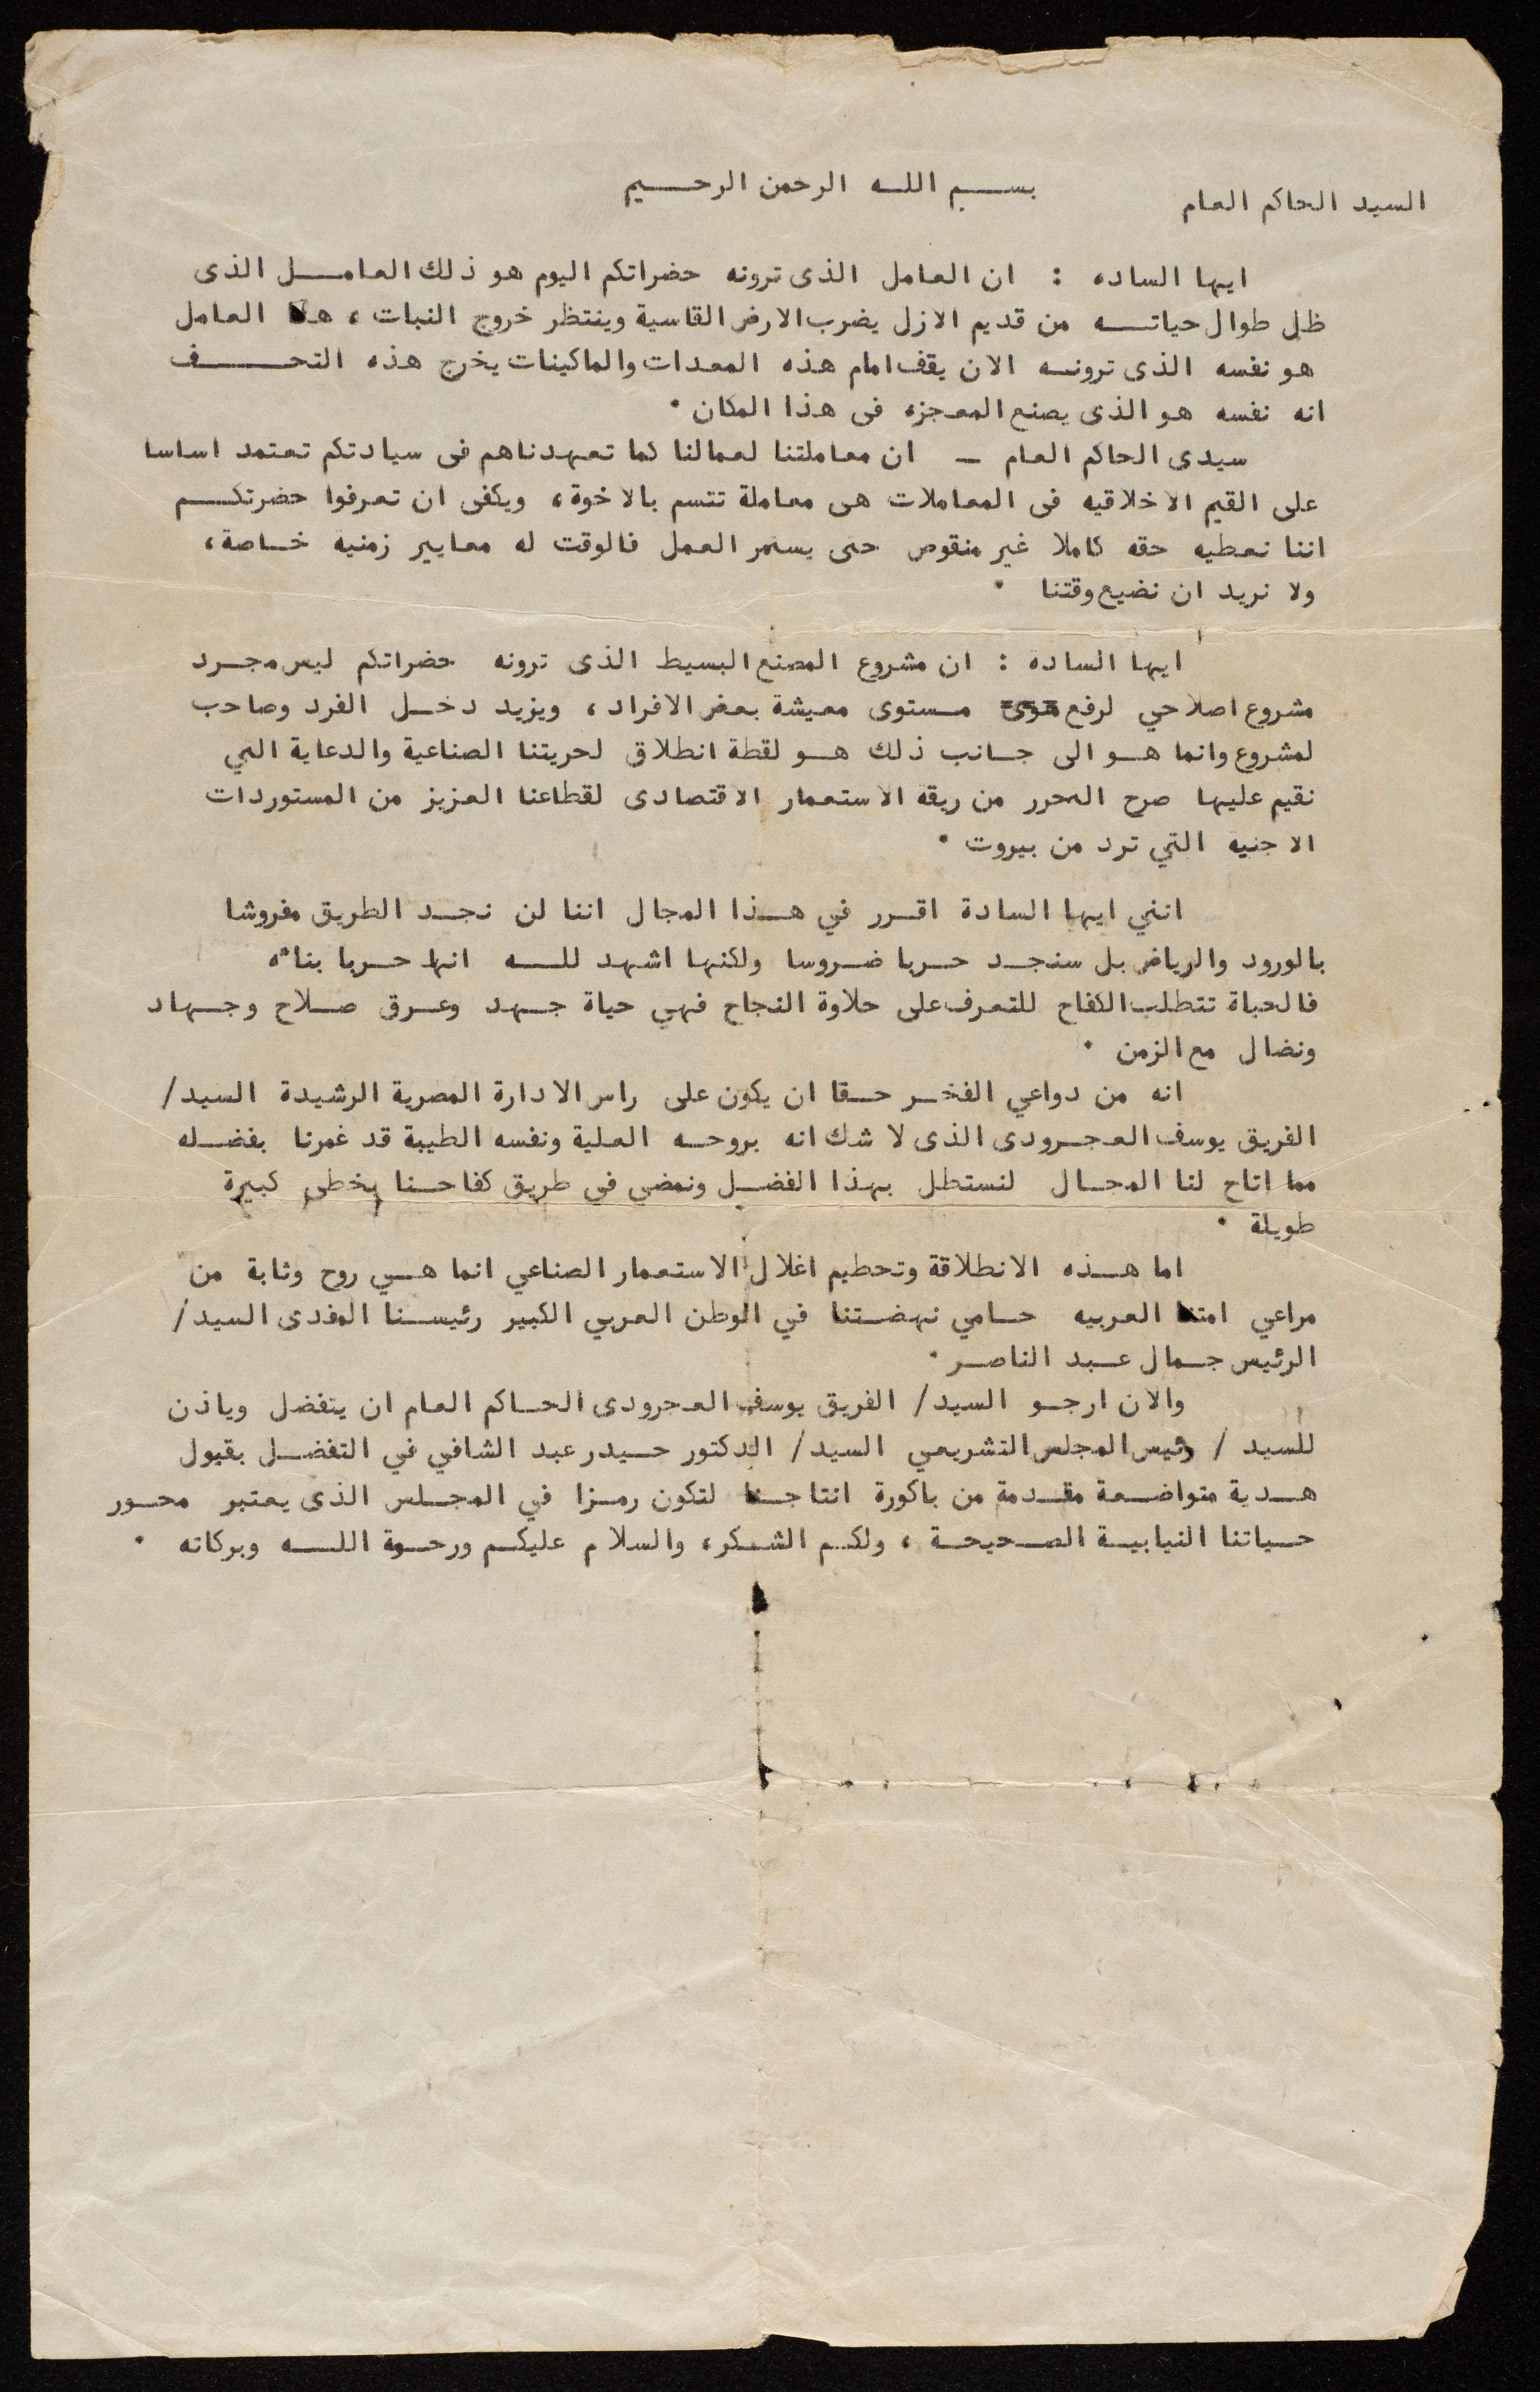 بسم الله الرحمن الرحيم
السيد الحاكم العام
ايها الساده : ان العامل الذى ترونه حضراتكم اليوم هو ذلك العامل الذى
ظل طوال حياته من قديم الازل يضرب الارض القاسية وينتظر خروج النبات ، هذا العامل
هو نفسه الذى ترونه الان يقف امام هذه المعدات والماكينات يخرج هذه التحف
انه نفسه هو الذى يصنع المعجزه فى هذا المكان .
سيدى الحاكم العام – ان معاملتنا لعمالنا كما تعهدناهم فى سيادتكم تعتمد اساسا
على القيم الاخلاقيه فى المعاملات هى معاملة تتسم بالاخوة ، ويكفى ان تعرفوا حضرتكم
اننا نعطيه حقه كاملا غير منقوص حتى يستمر العمل فالوقت له معايير زمنيه خاصة ،
ولا نريد ان نضيع وقتنا .
ايها السادة : ان مشروع المصنع البسيط الذى ترونه حضراتكم ليس مجرد
مشروع اصلاحي لرفع مستوى معيشة بعض الافراد ، ويزيد دخل الفرد وصاحب
لمشروع وانما هو الى جانب ذلك هو لقطة انطلاق لحريتنا الصناعية والدعاية التي
نقيم عليها صرح التحرر من ربقة الاستعمار الاقتصادى لقطاعنا العزيز من المستوردات
الاجنيه التي ترد من بيروت .
انني ايها السادة اقرر في هذا المجال اننا لن نجد الطريق مفروشا
بالورود والرياض بل سنجد حربا ضروسا ولكنها اشهد لله انها حربا بناءه
فالحياة تتطلب الكفاح للتعرف على حلاوة النجاح فهي حياة جهد وعرق صلاح وجهاد
ونضال مع الزمن .
انه من دواعي الفخر حقا ان يكون على راس الادارة المصرية الرشيدة السيد/
الفريق يوسف العجرودى الذى لا شك انه بروحه العلية ونفسه الطيبة قد غمرنا بفضله
مما اتاح لنا المجال لنستظل بهذا الفضل ونمضي في طريق كفاحنا بخطى كبيرة
طويلة .
اما هذه الانطلاقة وتحطيم اغلال الاستعمار الصناعي انما هي روح وثابة من
مراعي امتنا العربيه حامي نهضتنا في الوطن العربي الكبير رئيسنا المفدى السيد/
الرئيس جمال عبد الناصر .
والان ارجو السيد/ الفريق يوسف العجرودى الحاكم العام ان يتفضل وياذن
للسيد / رئيس المجلس التشريعي السيد/ الدكتور حيدر عبد الشافي في التفضل بقبول
هدية متواضعة مقدمة من باكورة انتاجنا لتكون رمزا في المجلس الذى يعتبر محور
حياتنا النيابية الصحيحة ، ولكم الشكر ، والسلام عليكم ورحمة الله وبركاته .